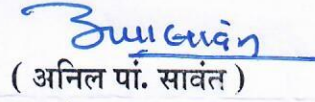 ( अनिल पां. सावंत )